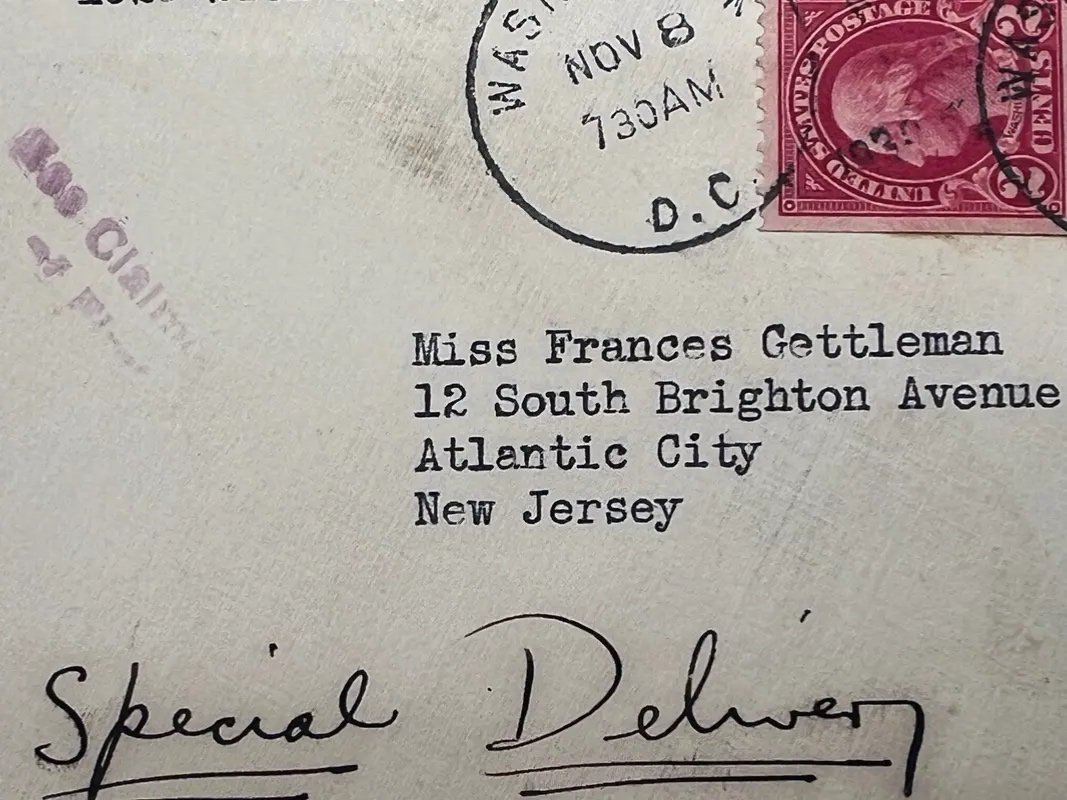 WAS
NOV 8
730AM
D.C.
UNITED STATES POSTAGE
2 CENTS 2
WA
Fee Claimed
Miss Frances Gettleman
12 South Brighton Avenue
Atlantic City
New Jersey
Special Delivery